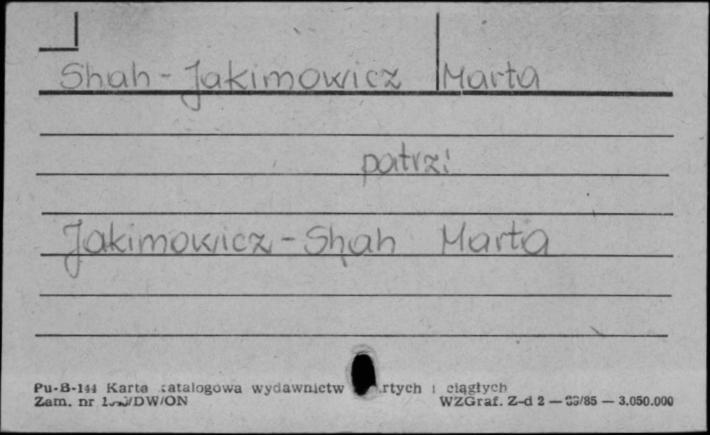 Shah-Jakimowicz Marta
patrz:
Jakimowicz-Shah Marta
Pu-B-144 Karta katalogowa wydawnictw i ciągłych
Zam. nr WZGraf. Z-d 2 — /85 — 3.050.000